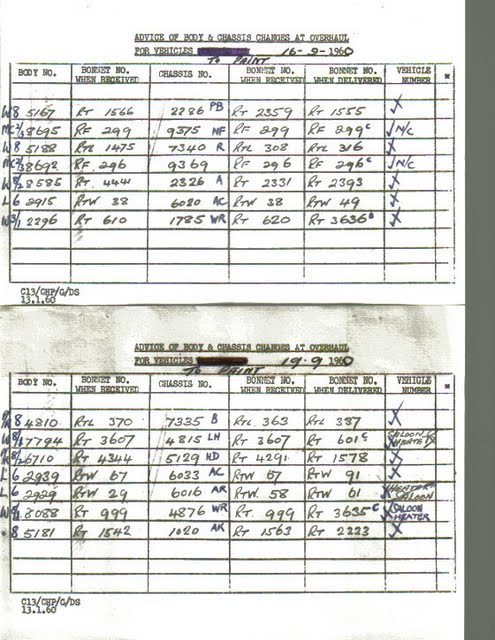 ADVICE OF BODY & CHASSIS CHANGES AT OVERHAUL
FOR VEHICLES 16-9-1960
TO PAINT
BODY NO. BONNET NO. WHEN RECEIVED CHASSIS NO. BONNET NO. WHEN RECEIVED BONNET NO. WHEN DELIVERED VEHICLE NUMBER *
W8 5167 RT 1566 2286 PB RT 2359 RT 1555 X
8695 RF 299 9375 NF RF 299 RF 299c N/C
W8 5188 RTL 1475 7340 R RTL 308 RTL 316 X
8692 RF 296 9369 RF 296 RF 296c N/C
8585 RT 444 2326 A RT 2331 RT 2393 X
L6 2915 RTW 38 6020 AC RTW 38 RTW 49 X
2296 RT 610 1785 WR RT 620 RT 3636 X
C13/CHP/G/DS
13.1.60
ADVICE OF BODY & CHASSIS CHANGES AT OVERHAUL
FOR VEHICLES 19-9 1960
TO PAINT
BODY NO. BONNET NO. WHEN RECEIVED CHASSIS NO. BONNET NO. WHEN RECEIVED BONNET NO. WHEN DELIVERED VEHICLE NUMBER *
8 4810 RTL 370 7335 B RTL 363 RTL 337 X
7794 RT 3607 4815 LH RT 3607 RT 601c SALOON HEATER
6710 RT 4344 5129 HD RT 4291 RT 1578 X
L6 2939 RTW 67 6033 AC RTW 67 RTW 91 X
L6 2929 RTW 29 6016 AR RTW 58 RTW 61 HEATER SALOON
3088 RT 999 4876 WR RT 999 RT 3635c SALOON HEATER
8 5181 RT 1542 1020 AK RT 1563 RT 2223 X
C13/CHP/G/DS
13.1.60